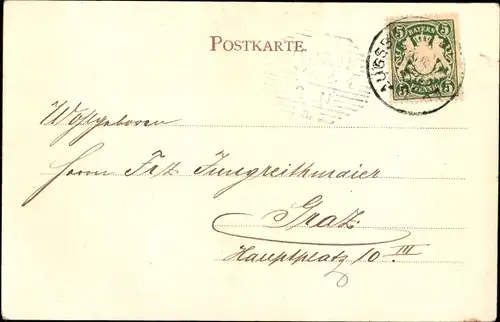 POSTKARTE.
5 BAYERN 5
5 PFENNIG 5
AUGSB
Wohlgeboren
Herrn Frz Jungreithmaier
Graz
Hauptplatz 10 III